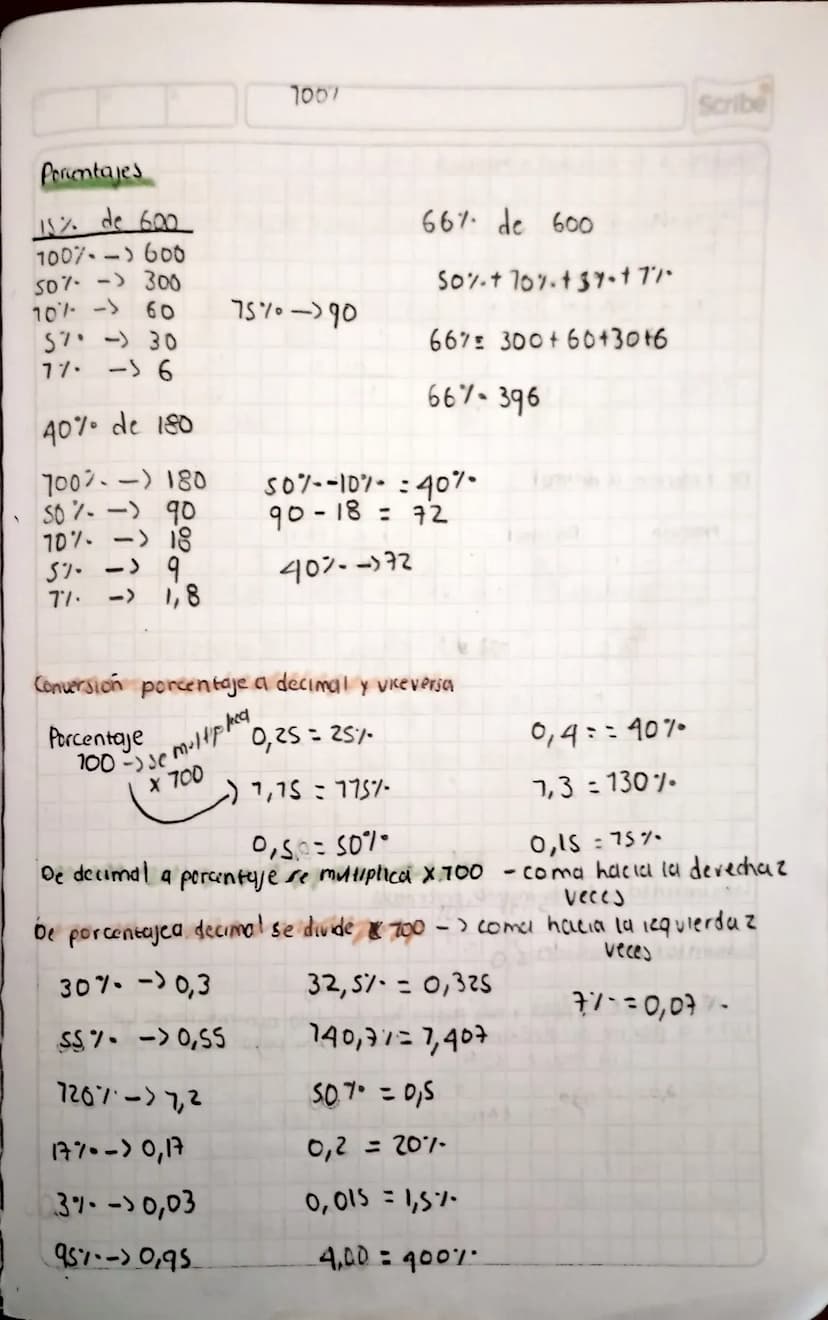 100%
Scribe
Porcentajes
15% de 600
100% -> 600
50% -> 300
10% -> 60
5% -> 30
1% -> 6
15% -> 90
66% de 600
50% + 10% + 5% + 1%
66% = 300 + 60 + 30 + 6
66% = 396
40% de 180
100% -> 180
50% -> 90
10% -> 18
5% -> 9
1% -> 1,8
50% - 10% = 40%
90 - 18 = 72
40% -> 72
Conversión porcentaje a decimal y viceversa
Porcentaje
100 -> se multiplica
x 100
0,25 = 25%
1,15 = 115%
0,50 = 50%
0,4 = = 40%
1,3 = 130%
0,15 = 15%
De decimal a porcentaje se multiplica x 100 - coma hacia la derecha 2
veces
De porcentaje a decimal se divide 100 -> coma hacia la izquierda 2
veces
30% -> 0,3
55% -> 0,55
120% -> 1,2
17% -> 0,17
3% -> 0,03
95% -> 0,95
32,5% = 0,325
140,7% = 1,407
50% = 0,5
0,2 = 20%
0,015 = 1,5%
4,00 = 400%
7% = 0,07